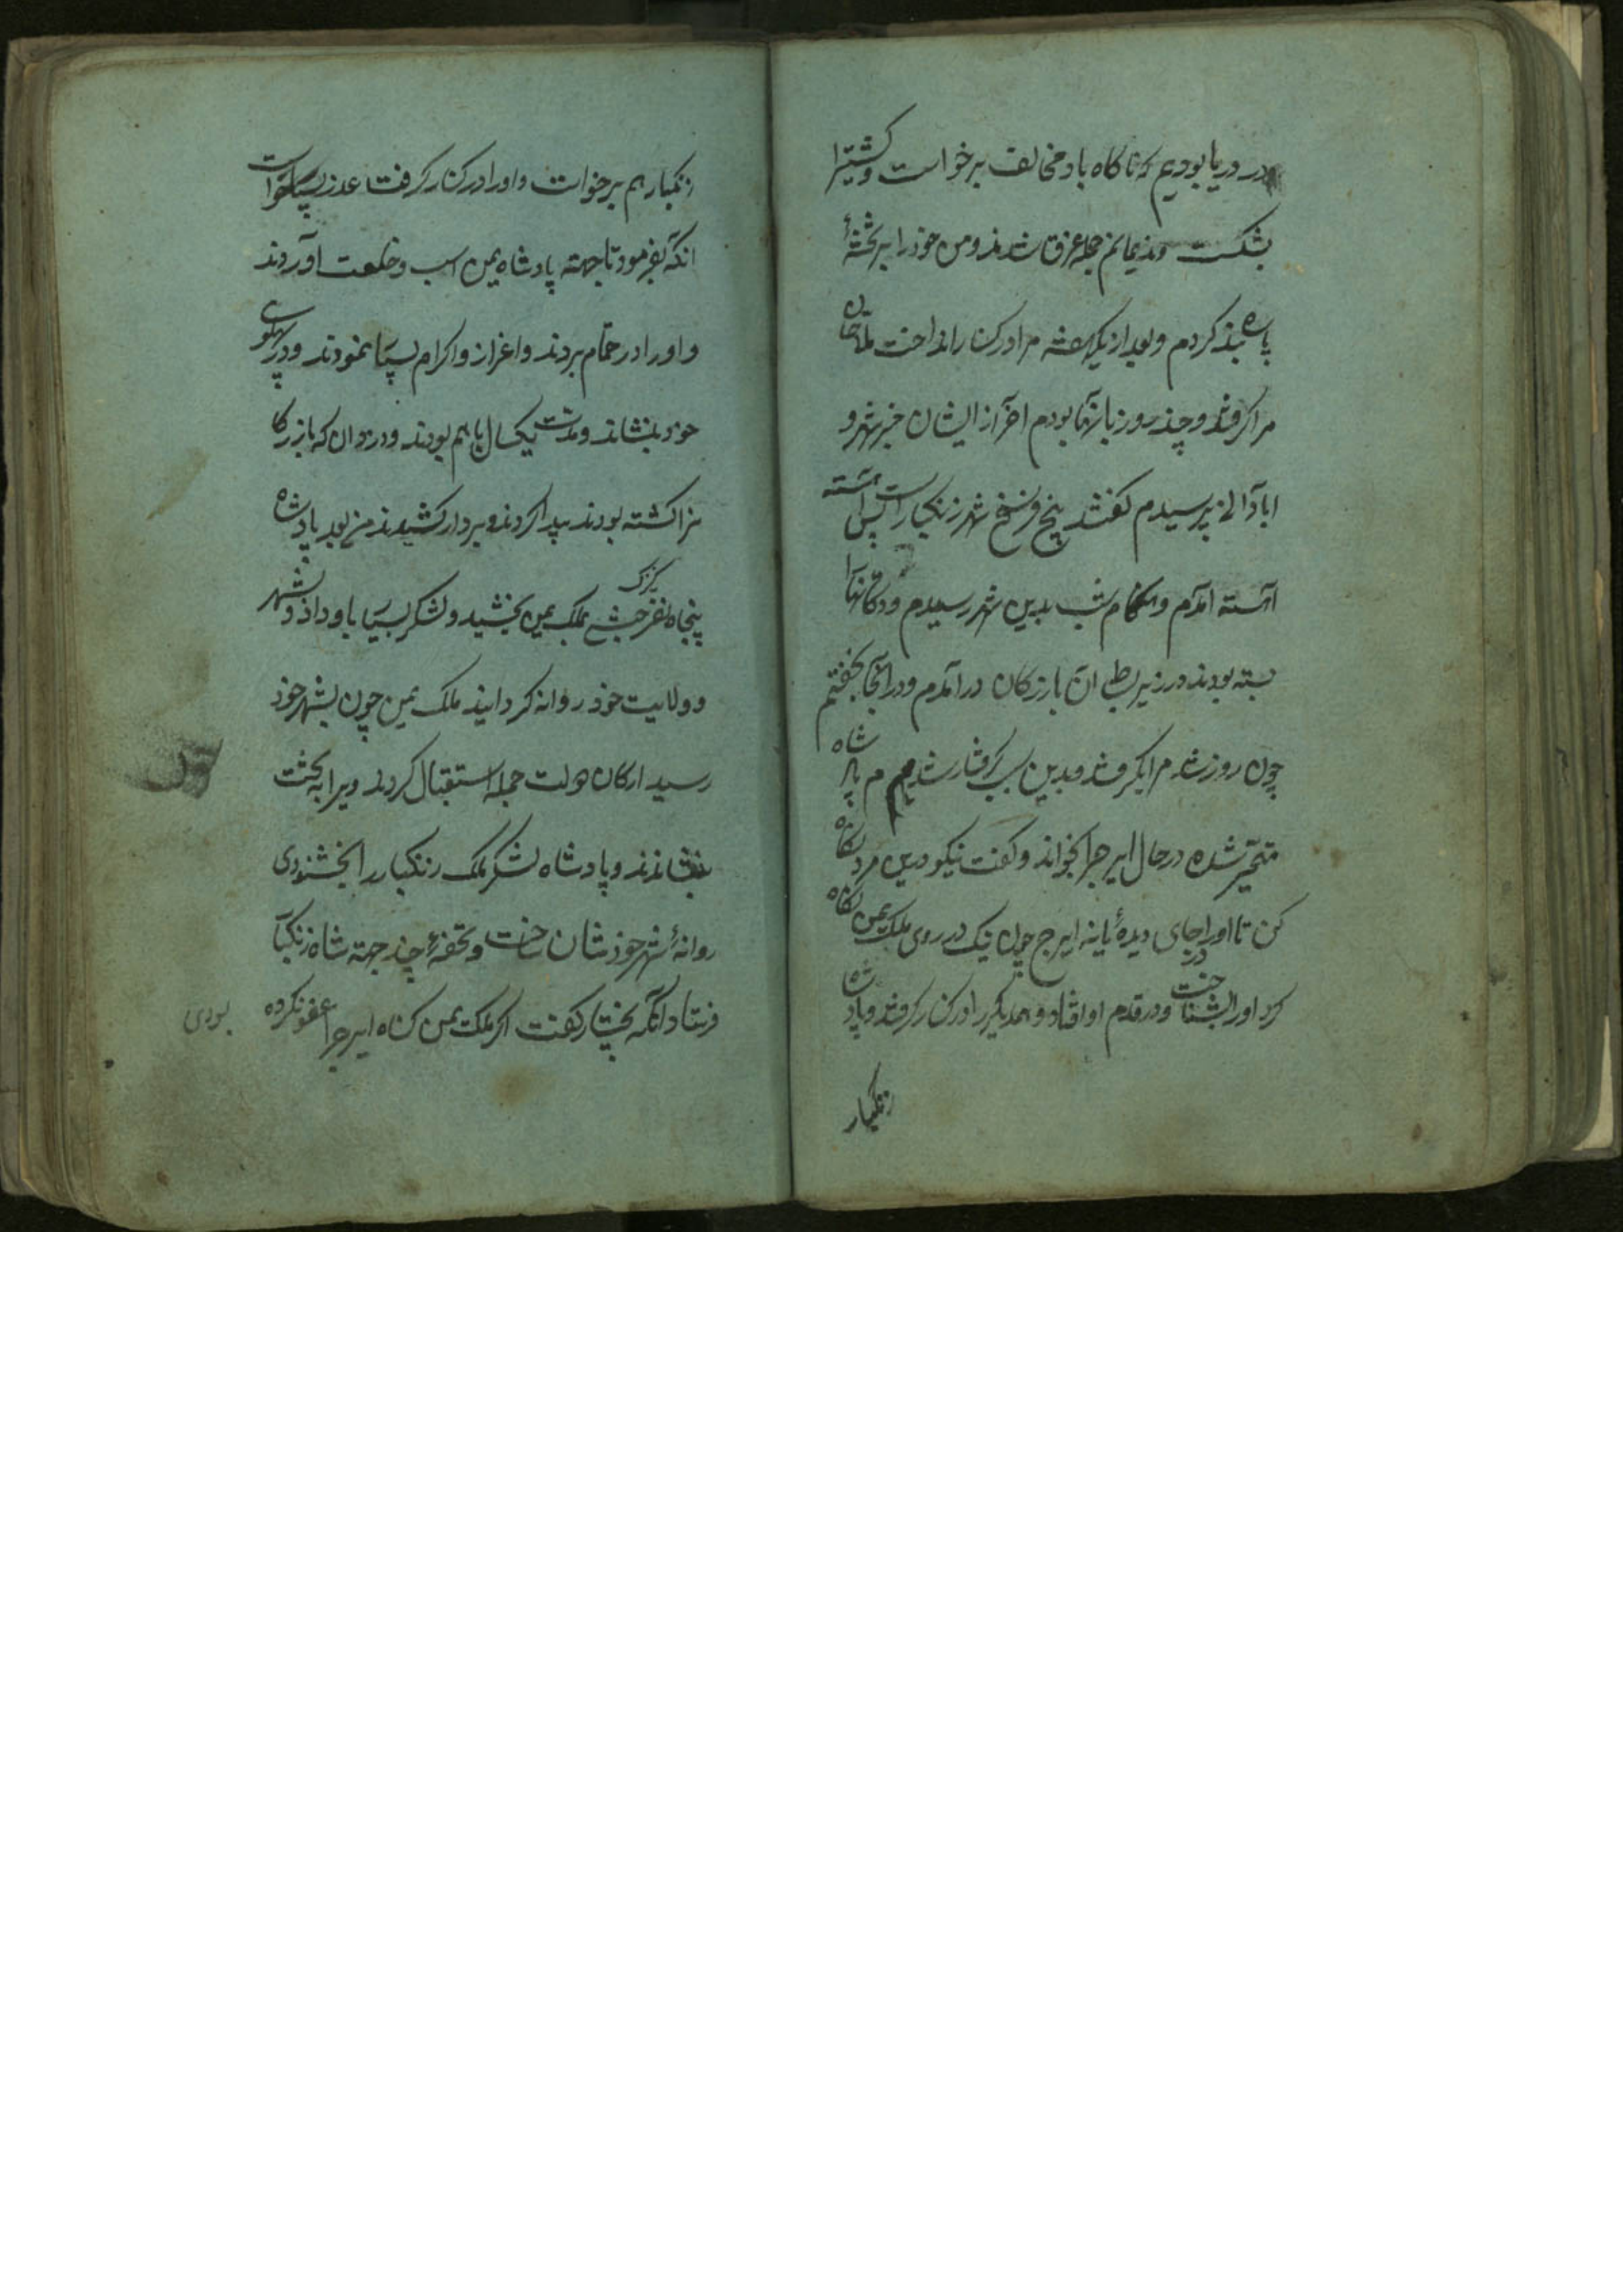 در دریا بودیم که ناکاه باد مخالف برخواست و کشتیرا
بشکست و ندیمانم جمله غرق شدند و من خود را بر تختهٔ
پاره بند کردم و بعد از یکهفته مرا در کنار انداخت ملاحان
مرا کرفتند و چند روز با آنها بودم اخر از ایشان خبر شهر و
ابادانی پرسیدم کفتند پنج فرسخ شهر زنکبار است پس آهسته
آهسته امدم و هنکام شب بدین شهر رسیدم و دکانها
بسته بودند در زیر بط ان بازرکان در امدم و در انجا بخفتم
چون روز شد مرا بکرفتند و بدین سبب کرفتار شدم پادشاه
متحیر شده در حال ایرجرا بخواند و کفت نیکو درین مرد نکاه
کن تا او را جای دیدهٔ یا نه ایرج چون نیک در روی ملک یمن نکاه
کرد او را بشناخت و در قدم او افتاد و همدیکر را در کنار کرفتند و پادشاه
زنکبار
زنکبار هم برخواست و او را در کنار کرفت عذر بسیار خواست
انکه بفرمود تا جهته پادشاه یمن اسب و خلعت آوردند
و او را در حمام بردند و اعزاز و اکرام بسیار نمودند و در پهلوی
خود بنشاند و مدت یکسال با هم بودند و دزدان که بازرکا
نرا کشته بودند پیدا کردند و بر دار کشیدند من بعد پادشاه
پنجاه نفر حبشی کنیزک بملک یمن بخشید و لشکر بسیار باو داد و بشهر
و ولایت خود روانه کردانید ملک یمن چون بشهر خود
رسید ارکان دولت جمله استقبال کردند ویرا به تخت
بنشاندند و پادشاه لشکر ملک زنکبار را بخشنودی
روانهٔ شهر خودشان ساخت و تحفهٔ چند جهته شاه زنکبار
فرستاد آنکه بختیار کفت اکر ملک یمن کناه ایرجرا عفو نکرده
بودی